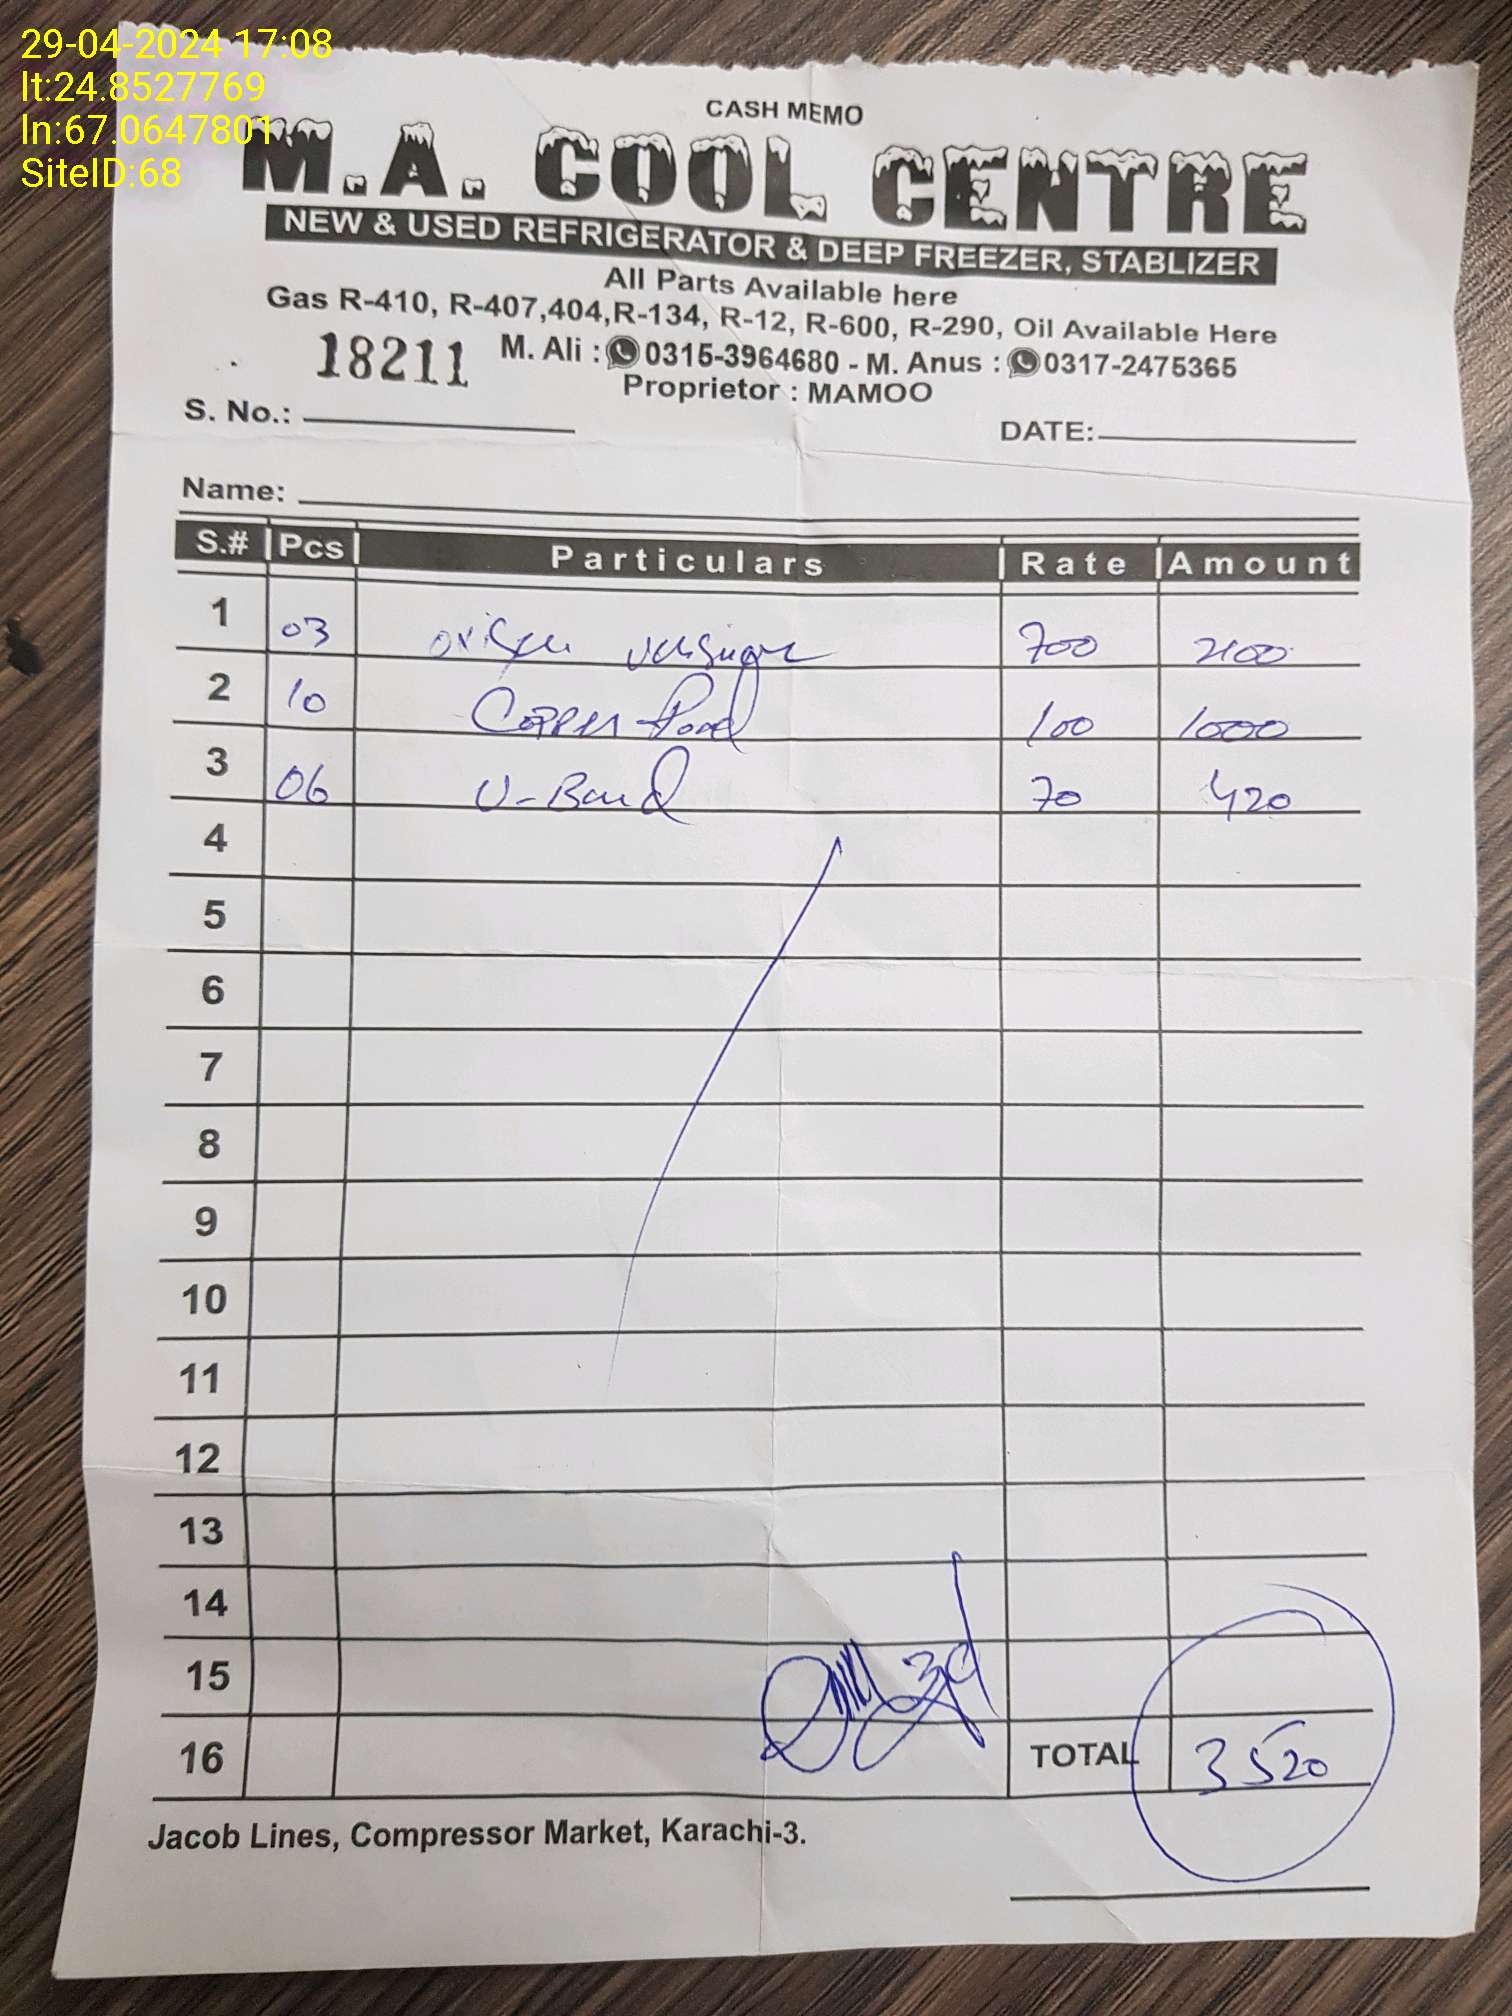 29-04-2024 17:08
lt:24.8527769
ln:67.0647801
SiteID:68
CASH MEMO
M.A. COOL CENTRE
NEW & USED REFRIGERATOR & DEEP FREEZER, STABLIZER
All Parts Available here
Gas R-410, R-407,404,R-134, R-12, R-600, R-290, Oil Available Here
18211 M. Ali : 0315-3964680 - M. Anus : 0317-2475365
Proprietor : MAMOO
S. No.: DATE:
Name:
S.# Pcs Particulars Rate Amount
1 03 700 2100
2 10 Copper 100 1000
3 06 U-Band 70 420
4
5
6
7
8
9
10
11
12
13
14
15
16 TOTAL 3520
Jacob Lines, Compressor Market, Karachi-3.